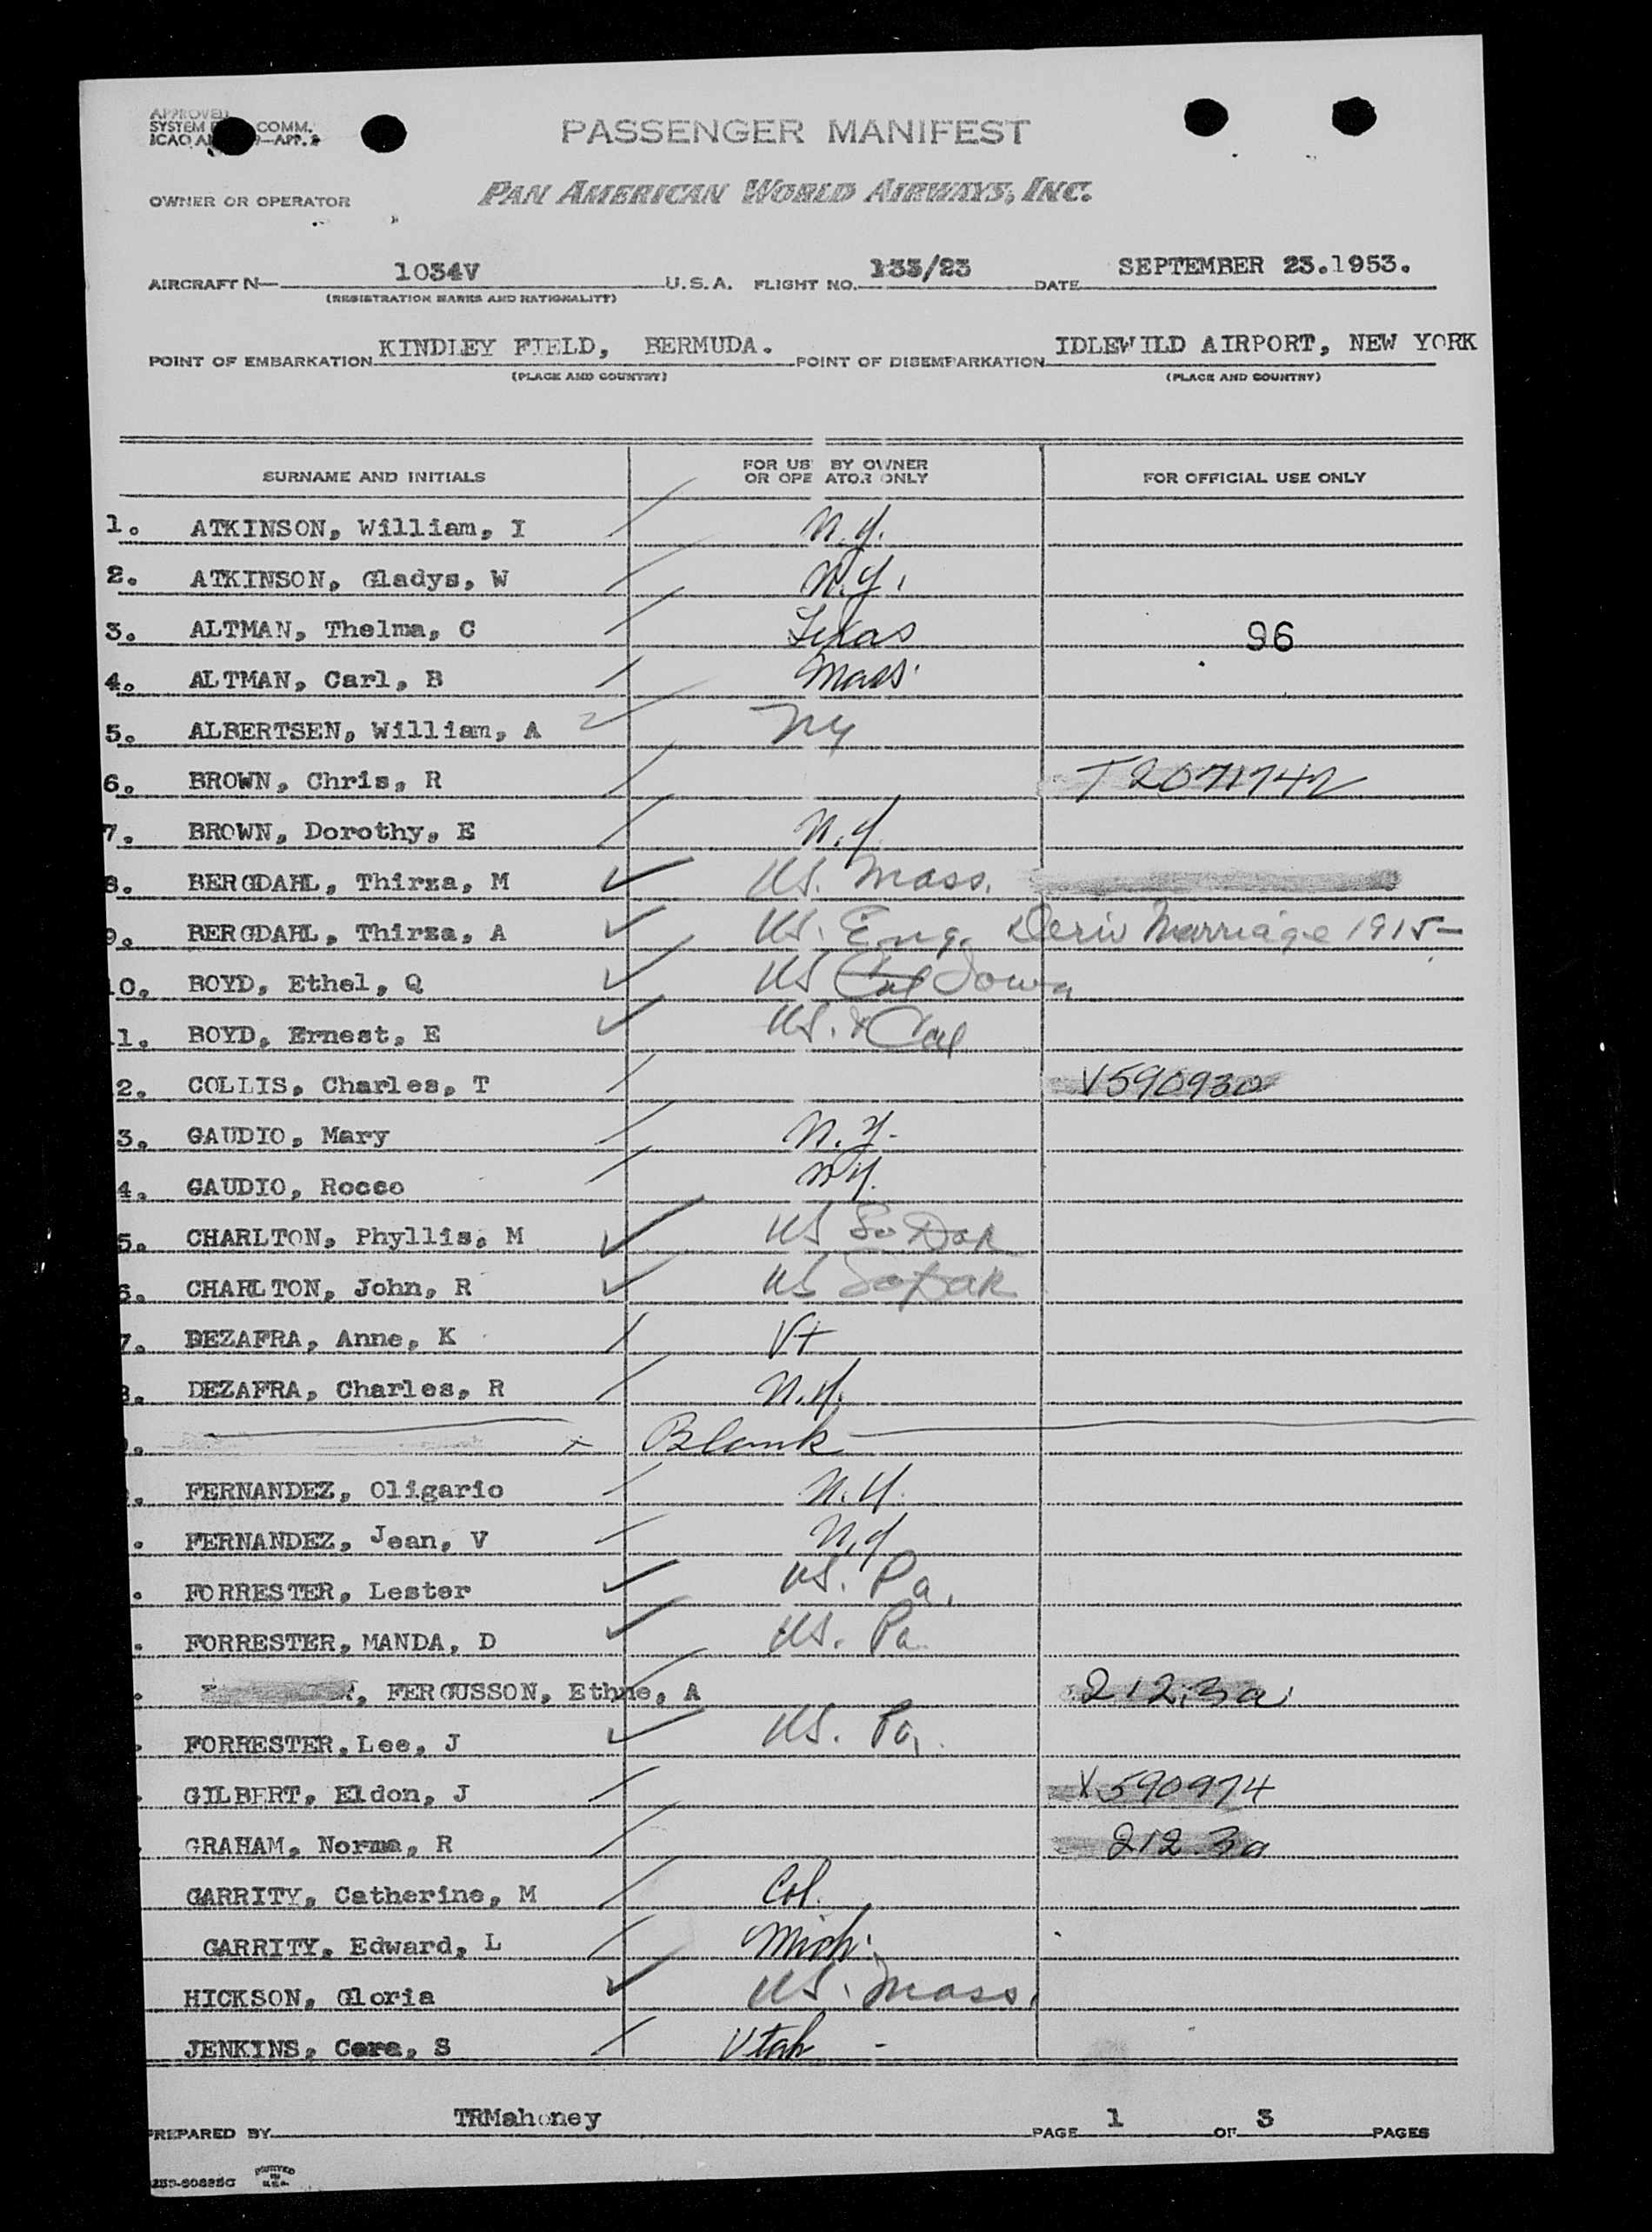 APPROVED
SYSTEM COMM.
ICAO —APP. 2
PASSENGER MANIFEST
OWNER OR OPERATOR PAN AMERICAN WORLD AIRWAYS, INC.
AIRCRAFT N— 1034V U.S.A. FLIGHT NO. 133/23 DATE SEPTEMBER 23.1953.
(REGISTRATION MARKS AND NATIONALITY)
POINT OF EMBARKATION KINDLEY FIELD, BERMUDA. POINT OF DISEMBARKATION IDLEWILD AIRPORT, NEW YORK
(PLACE AND COUNTRY) (PLACE AND COUNTRY)
SURNAME AND INITIALS FOR US BY OWNER OR OPE ATOR ONLY FOR OFFICIAL USE ONLY
1. ATKINSON, William, I N.Y.
2. ATKINSON, Gladys, W N.Y.
3. ALTMAN, Thelma, C Texas 96
4. ALTMAN, Carl, B Mass.
5. ALBERTSEN, William, A NY
6. BROWN, Chris, R T2071742
7. BROWN, Dorothy, E N.Y.
8. BERGDAHL, Thirza, M US. Mass.
9. BERGDAHL, Thirza, A US. Eng. Deriv Marriage 1915
10. BOYD, Ethel, Q US Cal Iowa
1. BOYD, Ernest, E US. Cal
2. COLLIS, Charles, T V590930
3. GAUDIO, Mary N.Y.
4. GAUDIO, Rocco N.Y.
5. CHARLTON, Phyllis, M US So Dak
6. CHARLTON, John, R US So Dak
7. DEZAFRA, Anne, K Vt
8. DEZAFRA, Charles, R N.Y.
. Blank
. FERNANDEZ, Oligario N.Y.
. FERNANDEZ, Jean, V N.Y
. FORRESTER, Lester US. Pa.
. FORRESTER, MANDA, D US. Pa.
. , FERGUSSON, Ethne, A 212.3a
. FORRESTER, Lee, J US. Pa.
. GILBERT, Eldon, J V590974
. GRAHAM, Norma, R 212.3a
GARRITY, Catherine, M Col.
GARRITY, Edward, L Mich.
HICKSON, Gloria US. Mass.
JENKINS, Cora, S Utah -
PREPARED BY TRMahoney PAGE 1 OF 3 PAGES
PRINTED IN U.S.A.